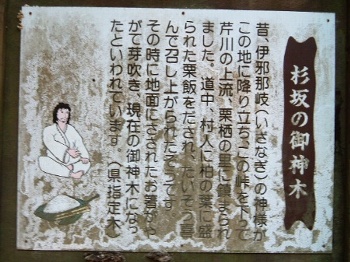 杉坂の御神木
昔、伊邪那岐(いさなぎ)の神様が
この地に降り立ち、この峠を下って
芹川の上流、栗栖の里に鎮まられ
ました。道中、村人に柏の葉に盛
られた栗飯をだされ、たいそう喜
んで召し上がられたそうです。
その時に地面にさされたお箸がや
がて芽吹き、現在の御神木になっ
たといわれています。(県指定木)